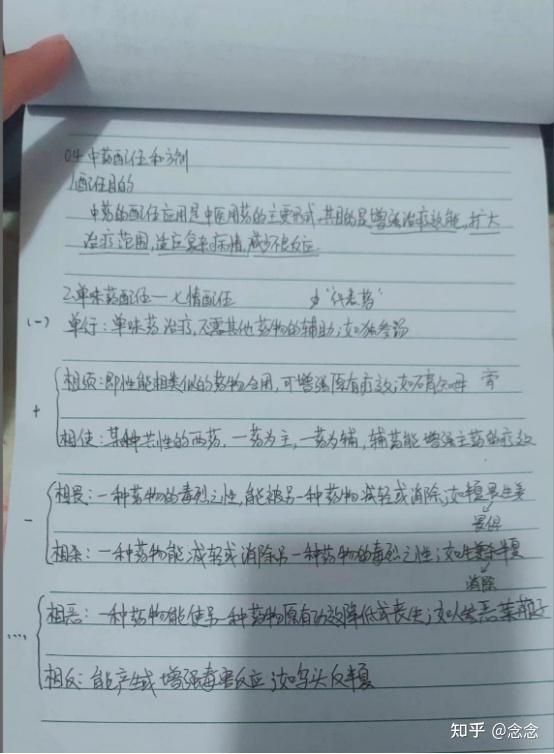 04.中药配伍和方剂
1.配伍目的
中药的配伍应用是中医用药的主要形式,其目的是增强治疗效能,扩大
治疗范围,适应复杂病情,减少不良反应.
2.单味药配伍一七情配伍 "代表药"
(一) 单行:单味药治疗,不需其他药物的辅助;如独参汤
+ 相须:即性能相类似的药物合用,可增强原有疗效;如石膏知母
相使:某种共性的两药,一药为主,一药为辅,辅药能增强主药的疗效
- 相畏:一种药物的毒烈之性,能被另一种药物减轻或消除;如半夏畏生姜
畏惧
相杀:一种药物能减轻或消除另一种药物的毒烈之性;如生姜杀半夏
消除
.... 相恶:一种药物能使另一种药物原有功效降低或丧失;如人参恶莱菔子
相反:能产生或增强毒害反应;如乌头反半夏
知乎 @念念